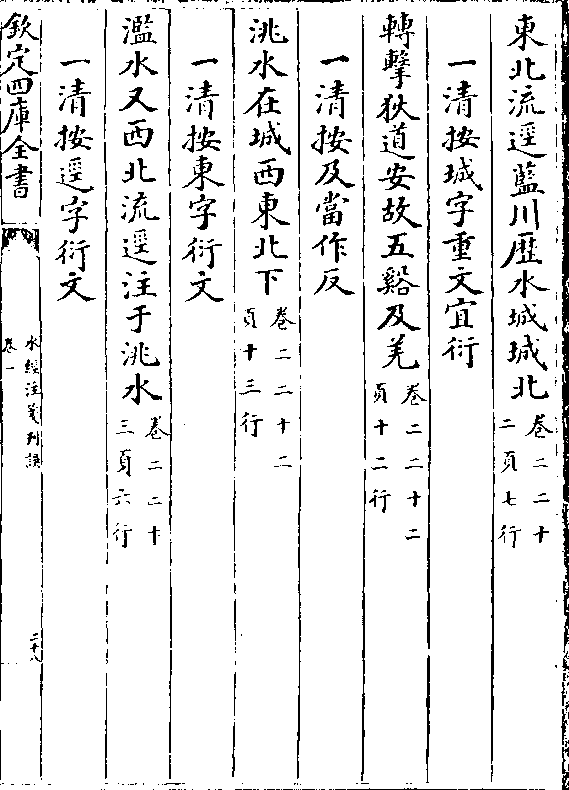 東北流逕藍川歷水城城北卷二二十二頁七行
一清按城字重文宜衍
轉擊狄道安故五谿及羌卷二二十二頁十二行
一清按及當作反
洮水在城西東北下卷二二十二頁十三行
一清按東字衍文
濫水又西北流逕注于洮水卷二二十三頁六行
一清按逕字衍文
欽定四庫全書
水經注箋刊誤
卷一
二十八